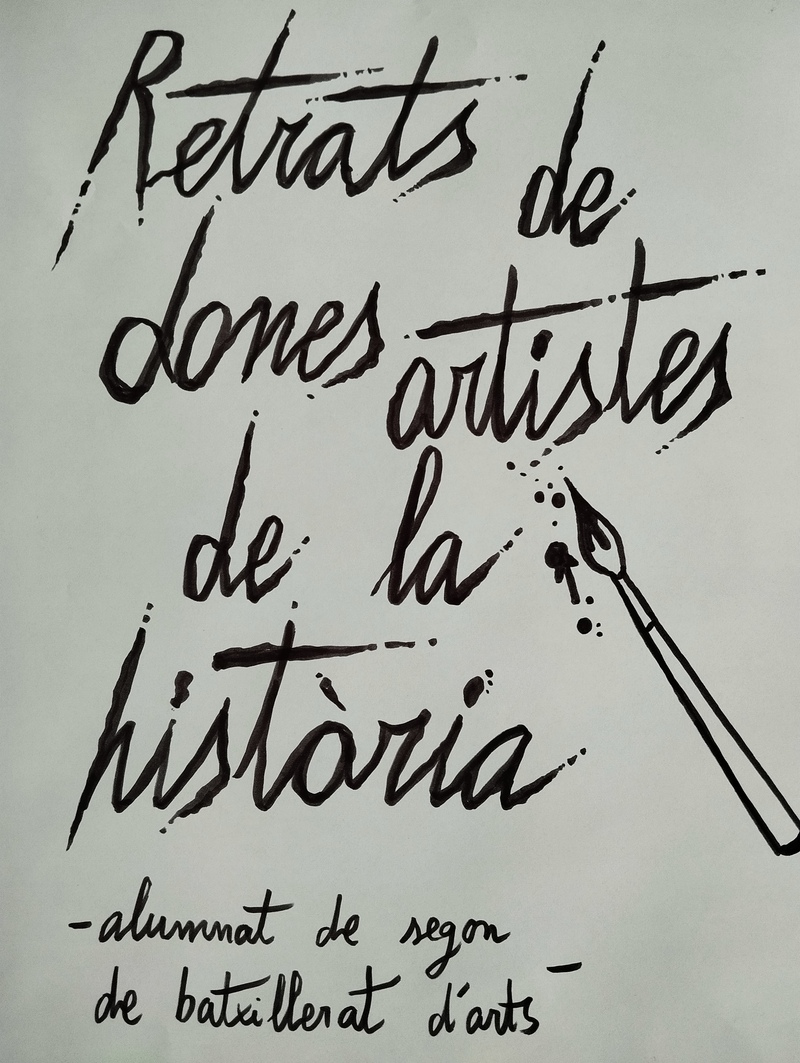 Retrats de
dones artistes
de la
història
-alumnat de segon
de batxillerat d'arts-